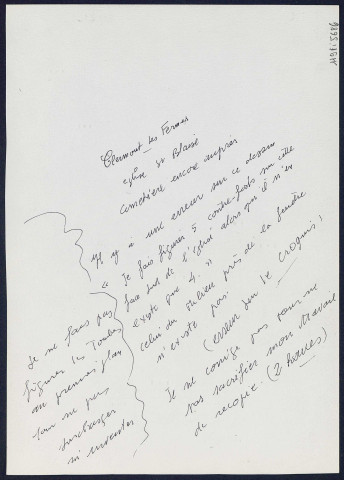 Clermont les Fermes
église St Blaise
cimetière encore auprès
Il y a une erreur sur ce dessin
"Je fais figurer 5 contre-forts sur cette
face sud de l'église alors qu'il n'en
existe que 4."
celui du milieu près de la fenêtre
n'existe pas.
(erreur sur le croquis)
Je ne corrige pas pour ne
pas sacrifier mon travail
de recopie. (2 heures)
Je ne fais pas
figurer les Tombes
au premier plan
pour ne pas
surcharger